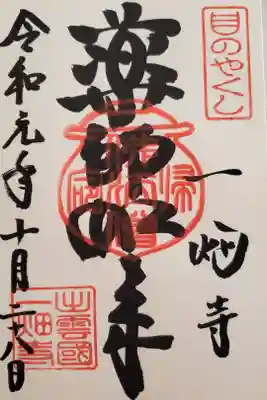 目のやくし
一畑寺
薬師如来
令和元年十月二八日
出雲國
一畑寺